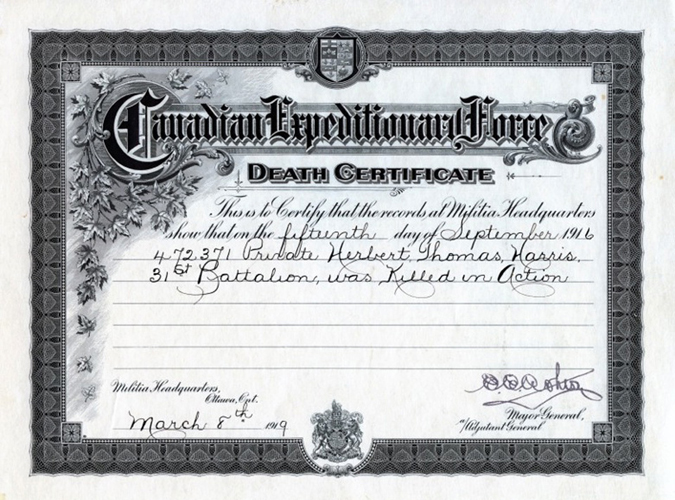 Canadian Expeditionary Force
DEATH CERTIFICATE
This is to Certify that the records at Militia Headquarters
show that on the fifteenth day of September 1916
472371 Private Herbert Thomas Harris,
31st Battalion, was Killed in Action
Militia Headquarters,
Ottawa, Ont.
March 8th 1919
Major General,
Adjutant General